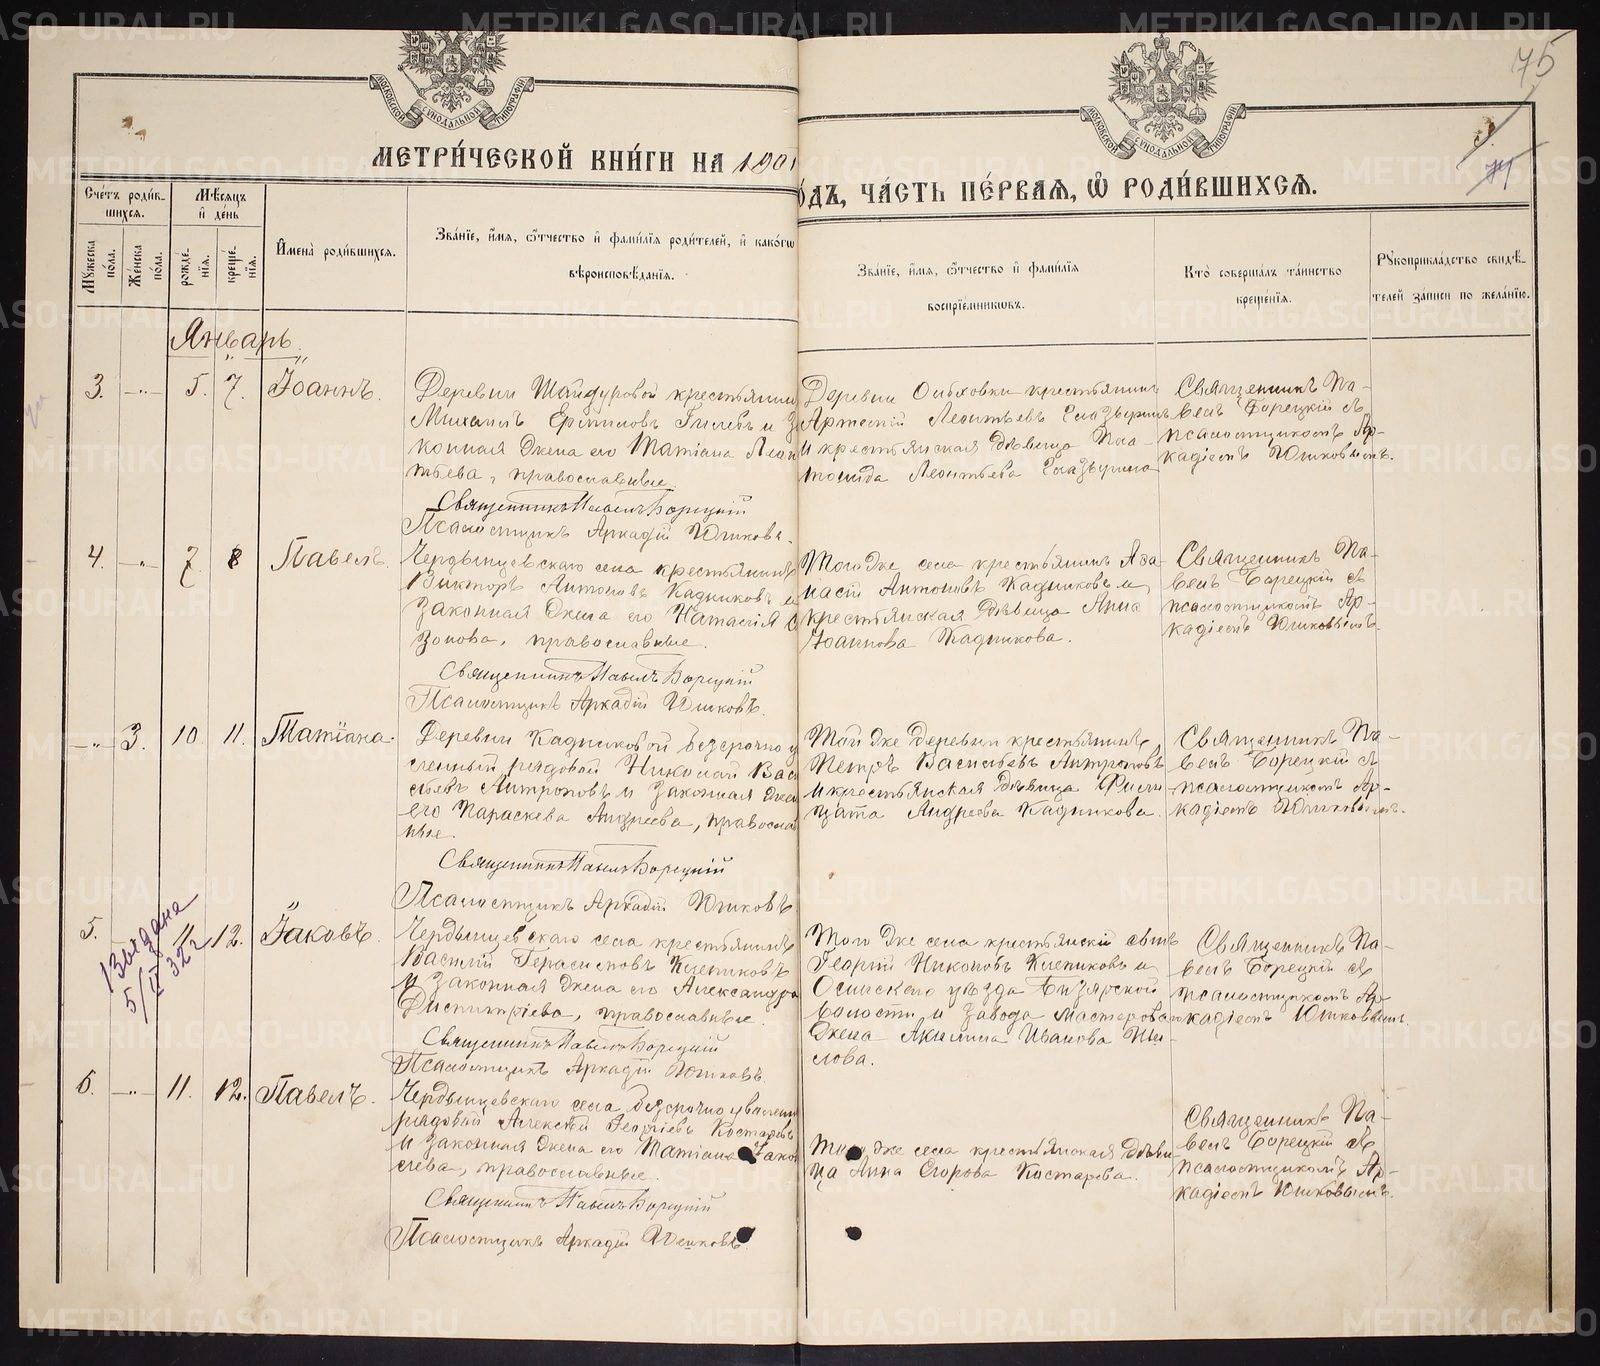 75
74
МОСКОВСКОЙ СѴНОДАЛЬНОЙ ТИПОГРАФИИ
МОСКОВСКОЙ СѴНОДАЛЬНОЙ ТИПОГРАФИИ
МЕТРИ́ЧЕСКОЙ КНИ́ГИ НА 1901
ОДЪ, ЧА́СТЬ ПЕ́РВАЯ, Ѡ҆ РОДИ́ВШИХСЯ.
Сче́тъ роди́в-
шихся.
Му́жеска по́ла.
Же́нска по́ла.
Мѣ́сяцъ
и҆ де́нь
рожде́нїя.
креще́нїя.
И҆мена̀ роди́вшихся.
Зва́нїе, и҆́мя, ѻ҆́тчество и҆ фами́лїя роди́телей, и҆ како́гѡ
вѣроисповѣ́данїя.
Зва́нїе, и҆́мя, ѻ҆́тчество и҆ фами́лїя
воспрїе́мниковъ.
Кто̀ соверша́лъ та́инство
креще́нїя.
Рꙋкоприкла́дство свидѣ́-
телей за́писи по жела́нїю.
Январь.
3. —"— 5. 7. Іоаннъ.
Деревни Шайдуровой крестьянин
Михаилъ Ермиловъ Гилевъ и З
конная жена его Татіана Леон
тьева, православные.
Священникъ Павелъ Борецкій
Псаломщикъ Аркадій Юшковъ.
Деревни крестьянин
Артемій Леонтьевъ
и крестьянская дѣвица Пла-
тонида Леонтьева
Священникъ Па-
велъ Борецкій съ
псаломщикомъ Ар-
кадіемъ Юшковымъ.
4. —"— 7. 8 Павелъ.
Чердынцевскаго села крестьянинъ
Викторъ Антоновъ Кадниковъ и
законная жена его Наталія С
зонова, православные.
Священникъ Павелъ Борецкій
Псаломщикъ Аркадій Юшковъ.
Того же села крестьянинъ Афа-
насій Антоновъ Кадниковъ и
крестьянская дѣвица Анна
Іоаннова Кадникова.
Священникъ Па-
велъ Борецкій съ
псаломщикомъ Ар-
кадіемъ Юшковымъ.
—"— 3. 10 11. Татіана.
Деревни Кадниковой безсрочно у
ленный рядовой Николай Васи
льевъ Антроповъ и законная жена
его Параскева Андреева, православ
ные.
Священникъ Павелъ Борецкій
Псаломщикъ Аркадій Юшковъ
Той же деревни крестьянинъ
Петръ Васильевъ Антроповъ
и крестьянская дѣвица Фили-
цата Андреева Кадникова.
Священникъ Па-
велъ Борецкій съ
псаломщикомъ Ар-
кадіемъ Юшковымъ.
5. 11. 12. Іаковъ.
5/II 32 г
Чердынцевскаго села крестьянинъ
Василій Герасимовъ Клепиковъ
и законная жена его Александра
Димитріева, православные.
Священникъ Павелъ Борецкій
Псаломщикъ Аркадій Юшковъ.
Того же села крестьянскій сынъ
Георгій Никоновъ Клепиковъ и
Осинскаго уѣзда Бизярской
волости и завода мастерова
жена Акилина Иванова
Священникъ Па-
велъ Борецкій съ
псаломщикомъ Ар-
кадіемъ Юшковымъ.
6. —"— 11. 12. Павелъ.
Чердынцевскаго села безсрочно уволен
рядовой Алексѣй Георгіевъ Костаревъ
и законная жена его Татіана Іако
влева, православные.
Священникъ Павелъ Борецкій
Псаломщикъ Аркадій Юшковъ.
Того же села крестьянская дѣви-
ца Анна Егорова Костарева.
Священникъ Па-
велъ Борецкій съ
псаломщикомъ Ар-
кадіемъ Юшковымъ.
METRIKI.GASO-URAL.RU